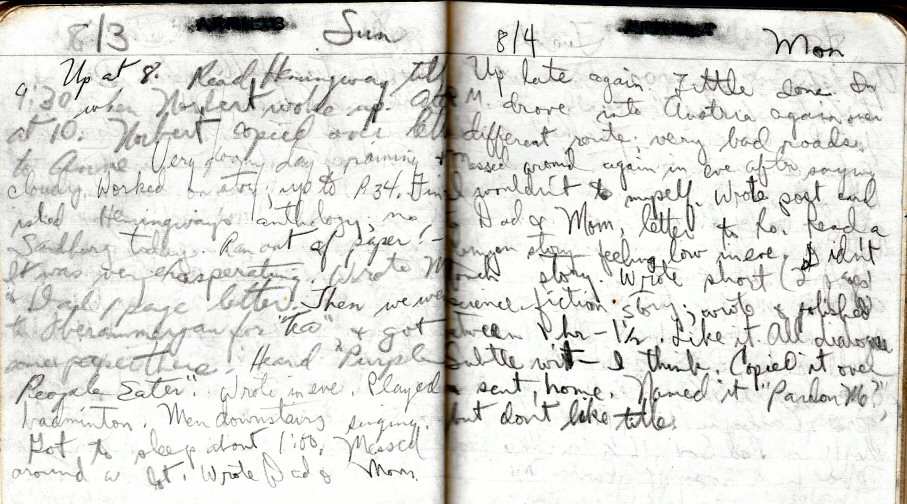 8/3 Sun
Up at 8. Read Hemingway till
9:30 when Norbert woke up.
at 10. Norbert copied over
to Very gloomy day, raining &
cloudy. Worked on story, up to P. 34. Fin-
ished Hemingway's anthology, no
Sandburg today. Ran out of paper! -
It was very exasperating. Wrote M
& Dad 1 page letter. Then we we
to Oberammergau for "Tea" & got
some paper there. Heard "Purple
People Eater". Wrote in eve. Played
badminton. Men downstairs singing.
Got to sleep about 1:00. Messed
around a lot. Wrote Dad & Mom.
8/4 Mon
Up late again. Little done. In
M. drove into Austria again over
different route; very bad roads.
Messed around again in eve after saying
I wouldn't to myself. Wrote post card
to Dad & Mom, letter to Ro. Read a
story feeling low in eve. I didn't
touch story. Wrote short (2 pages)
science fiction story; wrote & polished
between 1 hr - 1½. Like it. All dialogue
Subtle wit - I think. Copied it over
& sent home. Named it "Pardon Me?",
but don't like title.